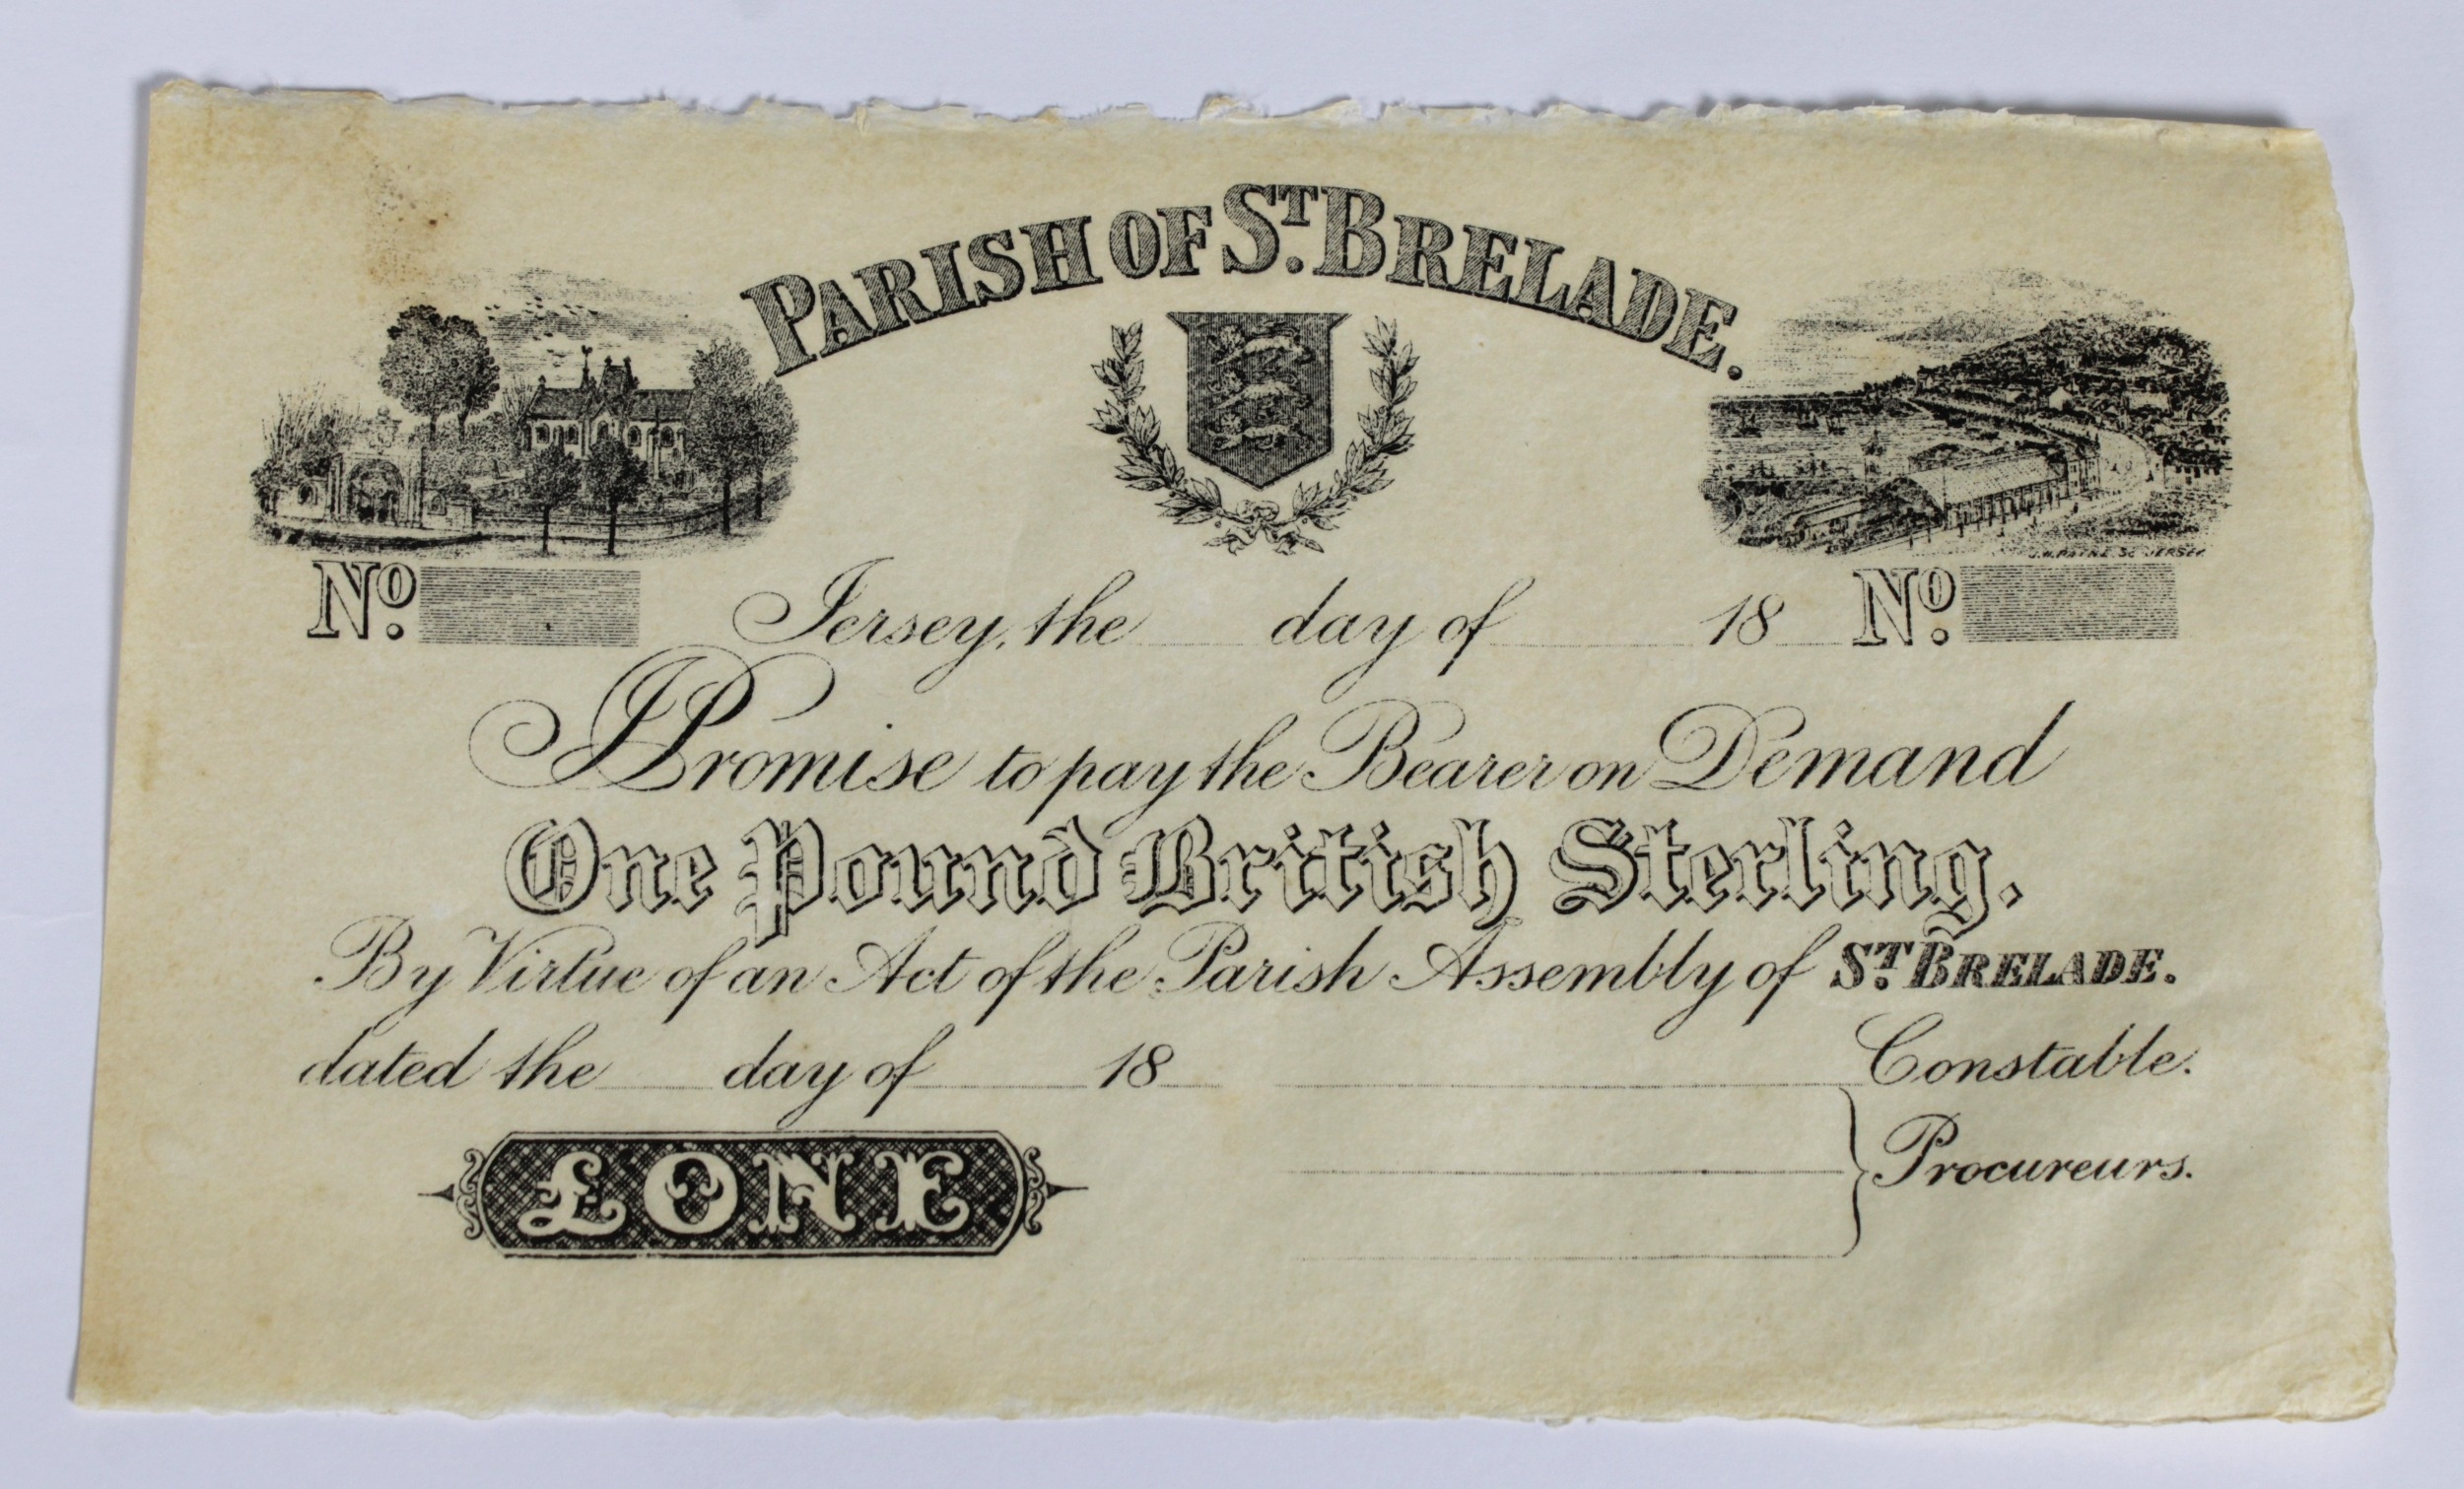 PARISH OF ST. BRELADE.
J.H. PAYNE SC JERSEY
No. Jersey, the day of 18 No.
I Promise to pay the Bearer on Demand
One Pound British Sterling.
By Virtue of an Act of the Parish Assembly of ST. BRELADE.
dated the day of 18 Constable.
Procureurs.
£ONE